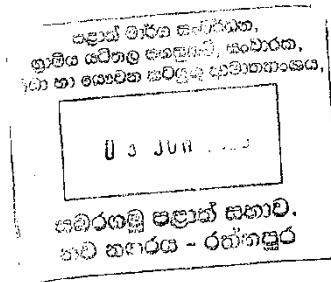 පළාත් මාර්ග සංවර්ධන,
ග්‍රාමීය යටිතල පහසුකම්, සංචාරක,
හා යෞවන කටයුතු අමාත්‍යාංශය,
0 3 JUN
සබරගමු පළාත් සභාව.
නව නගරය - රත්නපුර